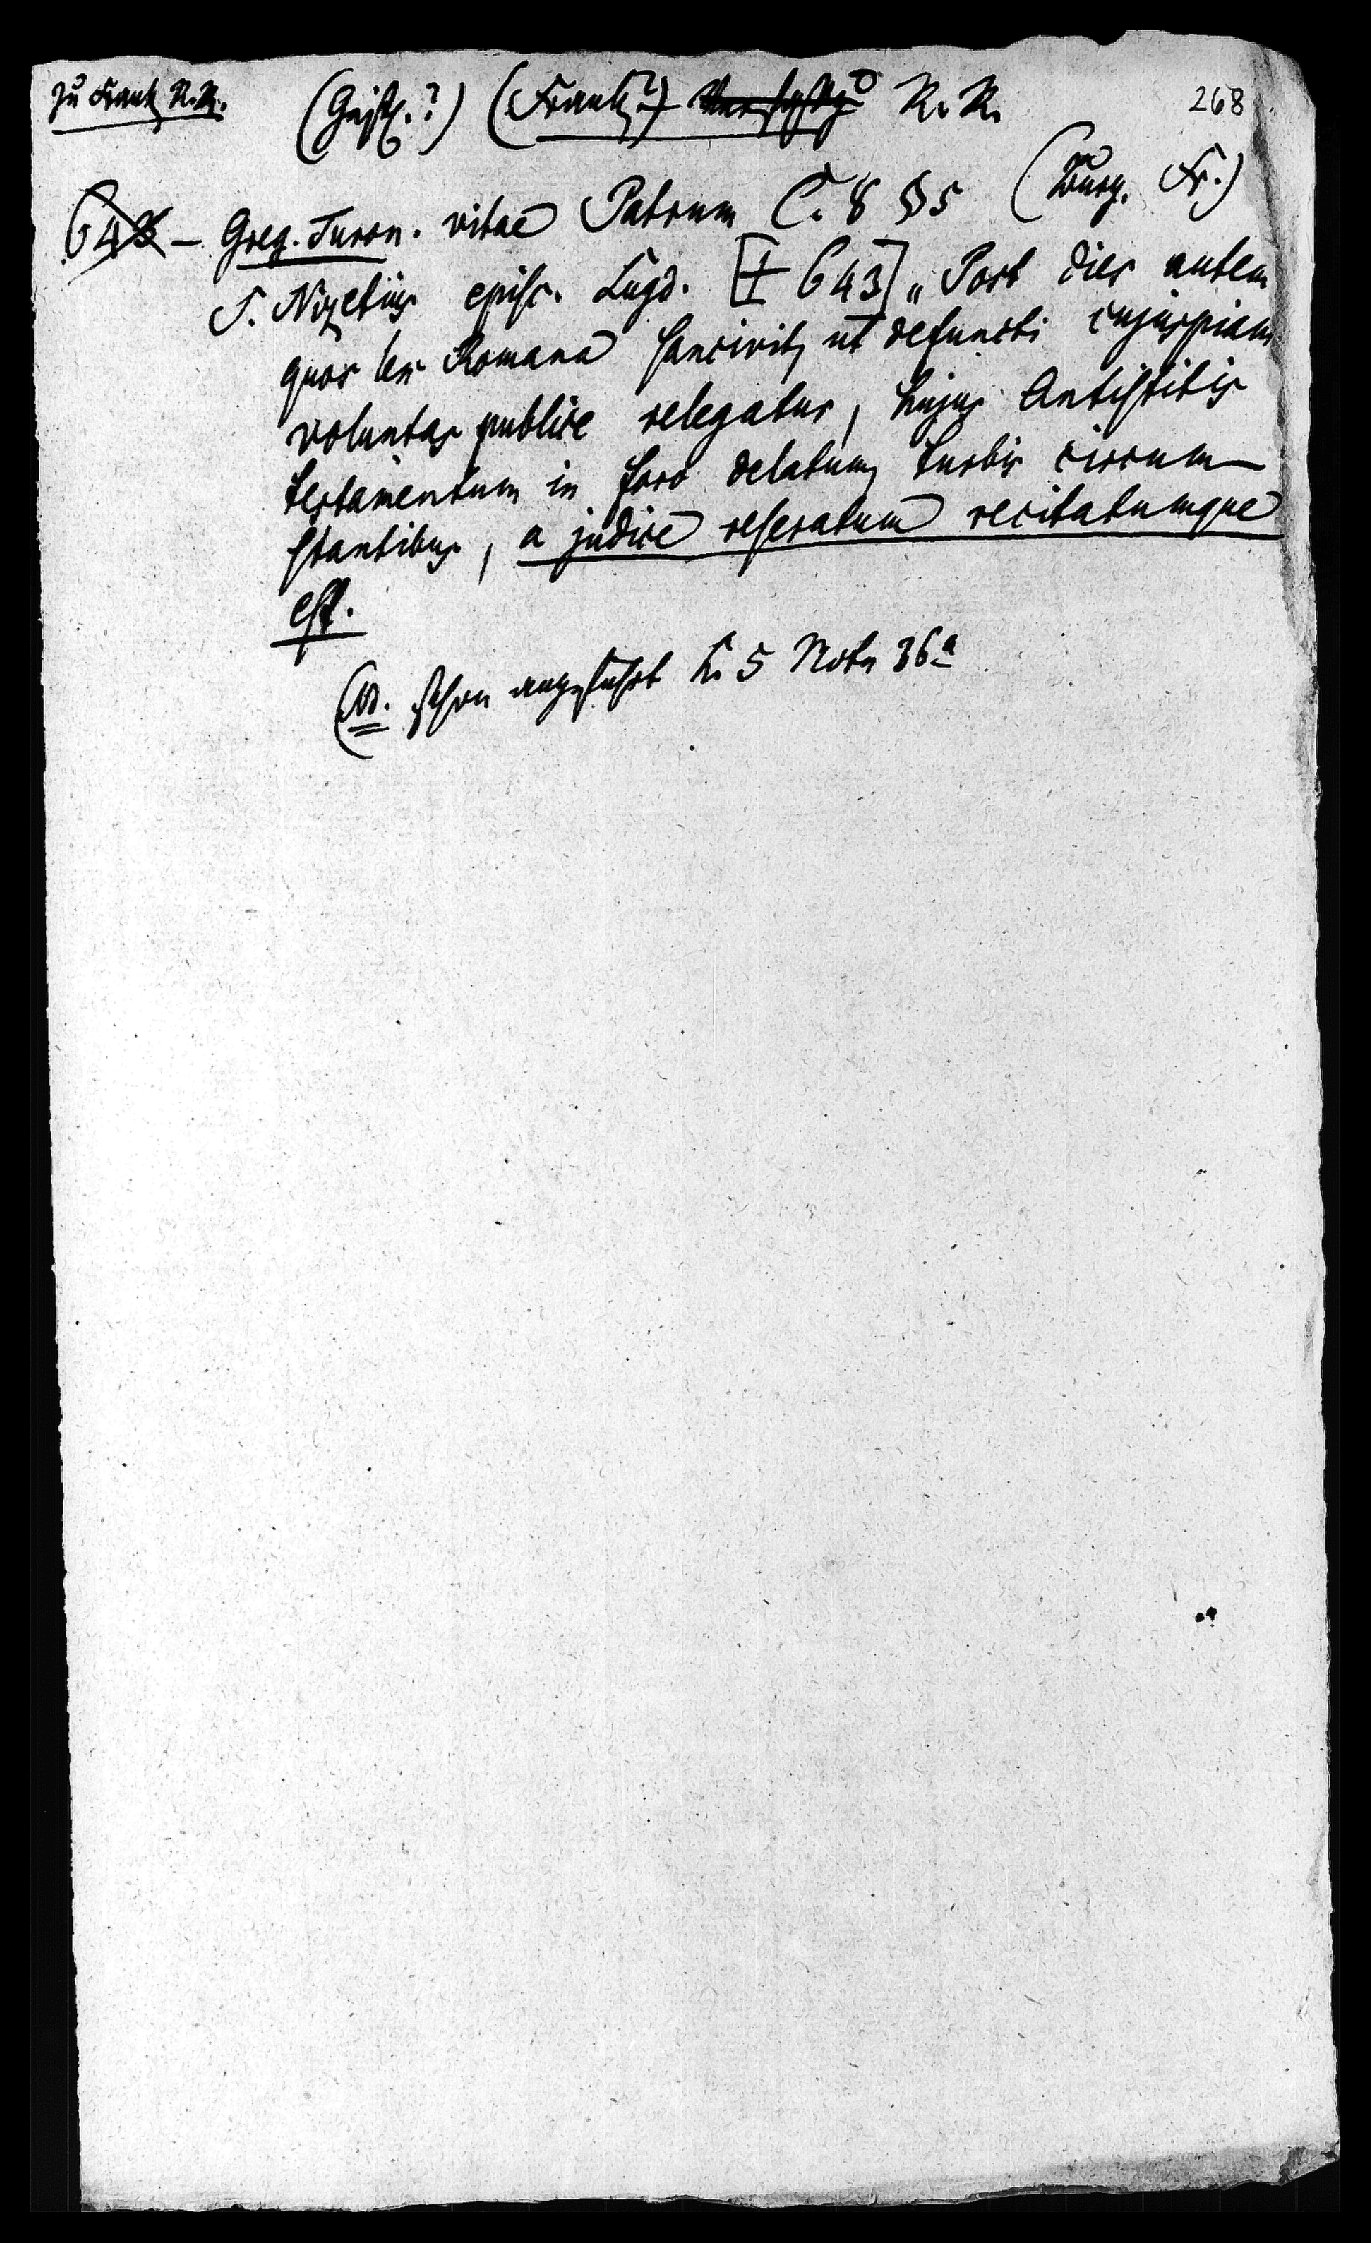 zu Frank R.R.
(Geistl.?) (Frank?) R.R.
268
643 – Greg. Turon. vitae Patrum C. 8 § 5 (Burg. Fr.)
S. Nizetius episc. Lugd. [I 643] „Post dies autem
quos lex Romana sancivit, ut defuncti cujuspiam
voluntas publice relegatur, hujus Antistitis
testamentum in foro delatum, turbis circum-
stantibus, a judice reseratum recitatumque
est.
schon angeführt K. 5 Note 36a